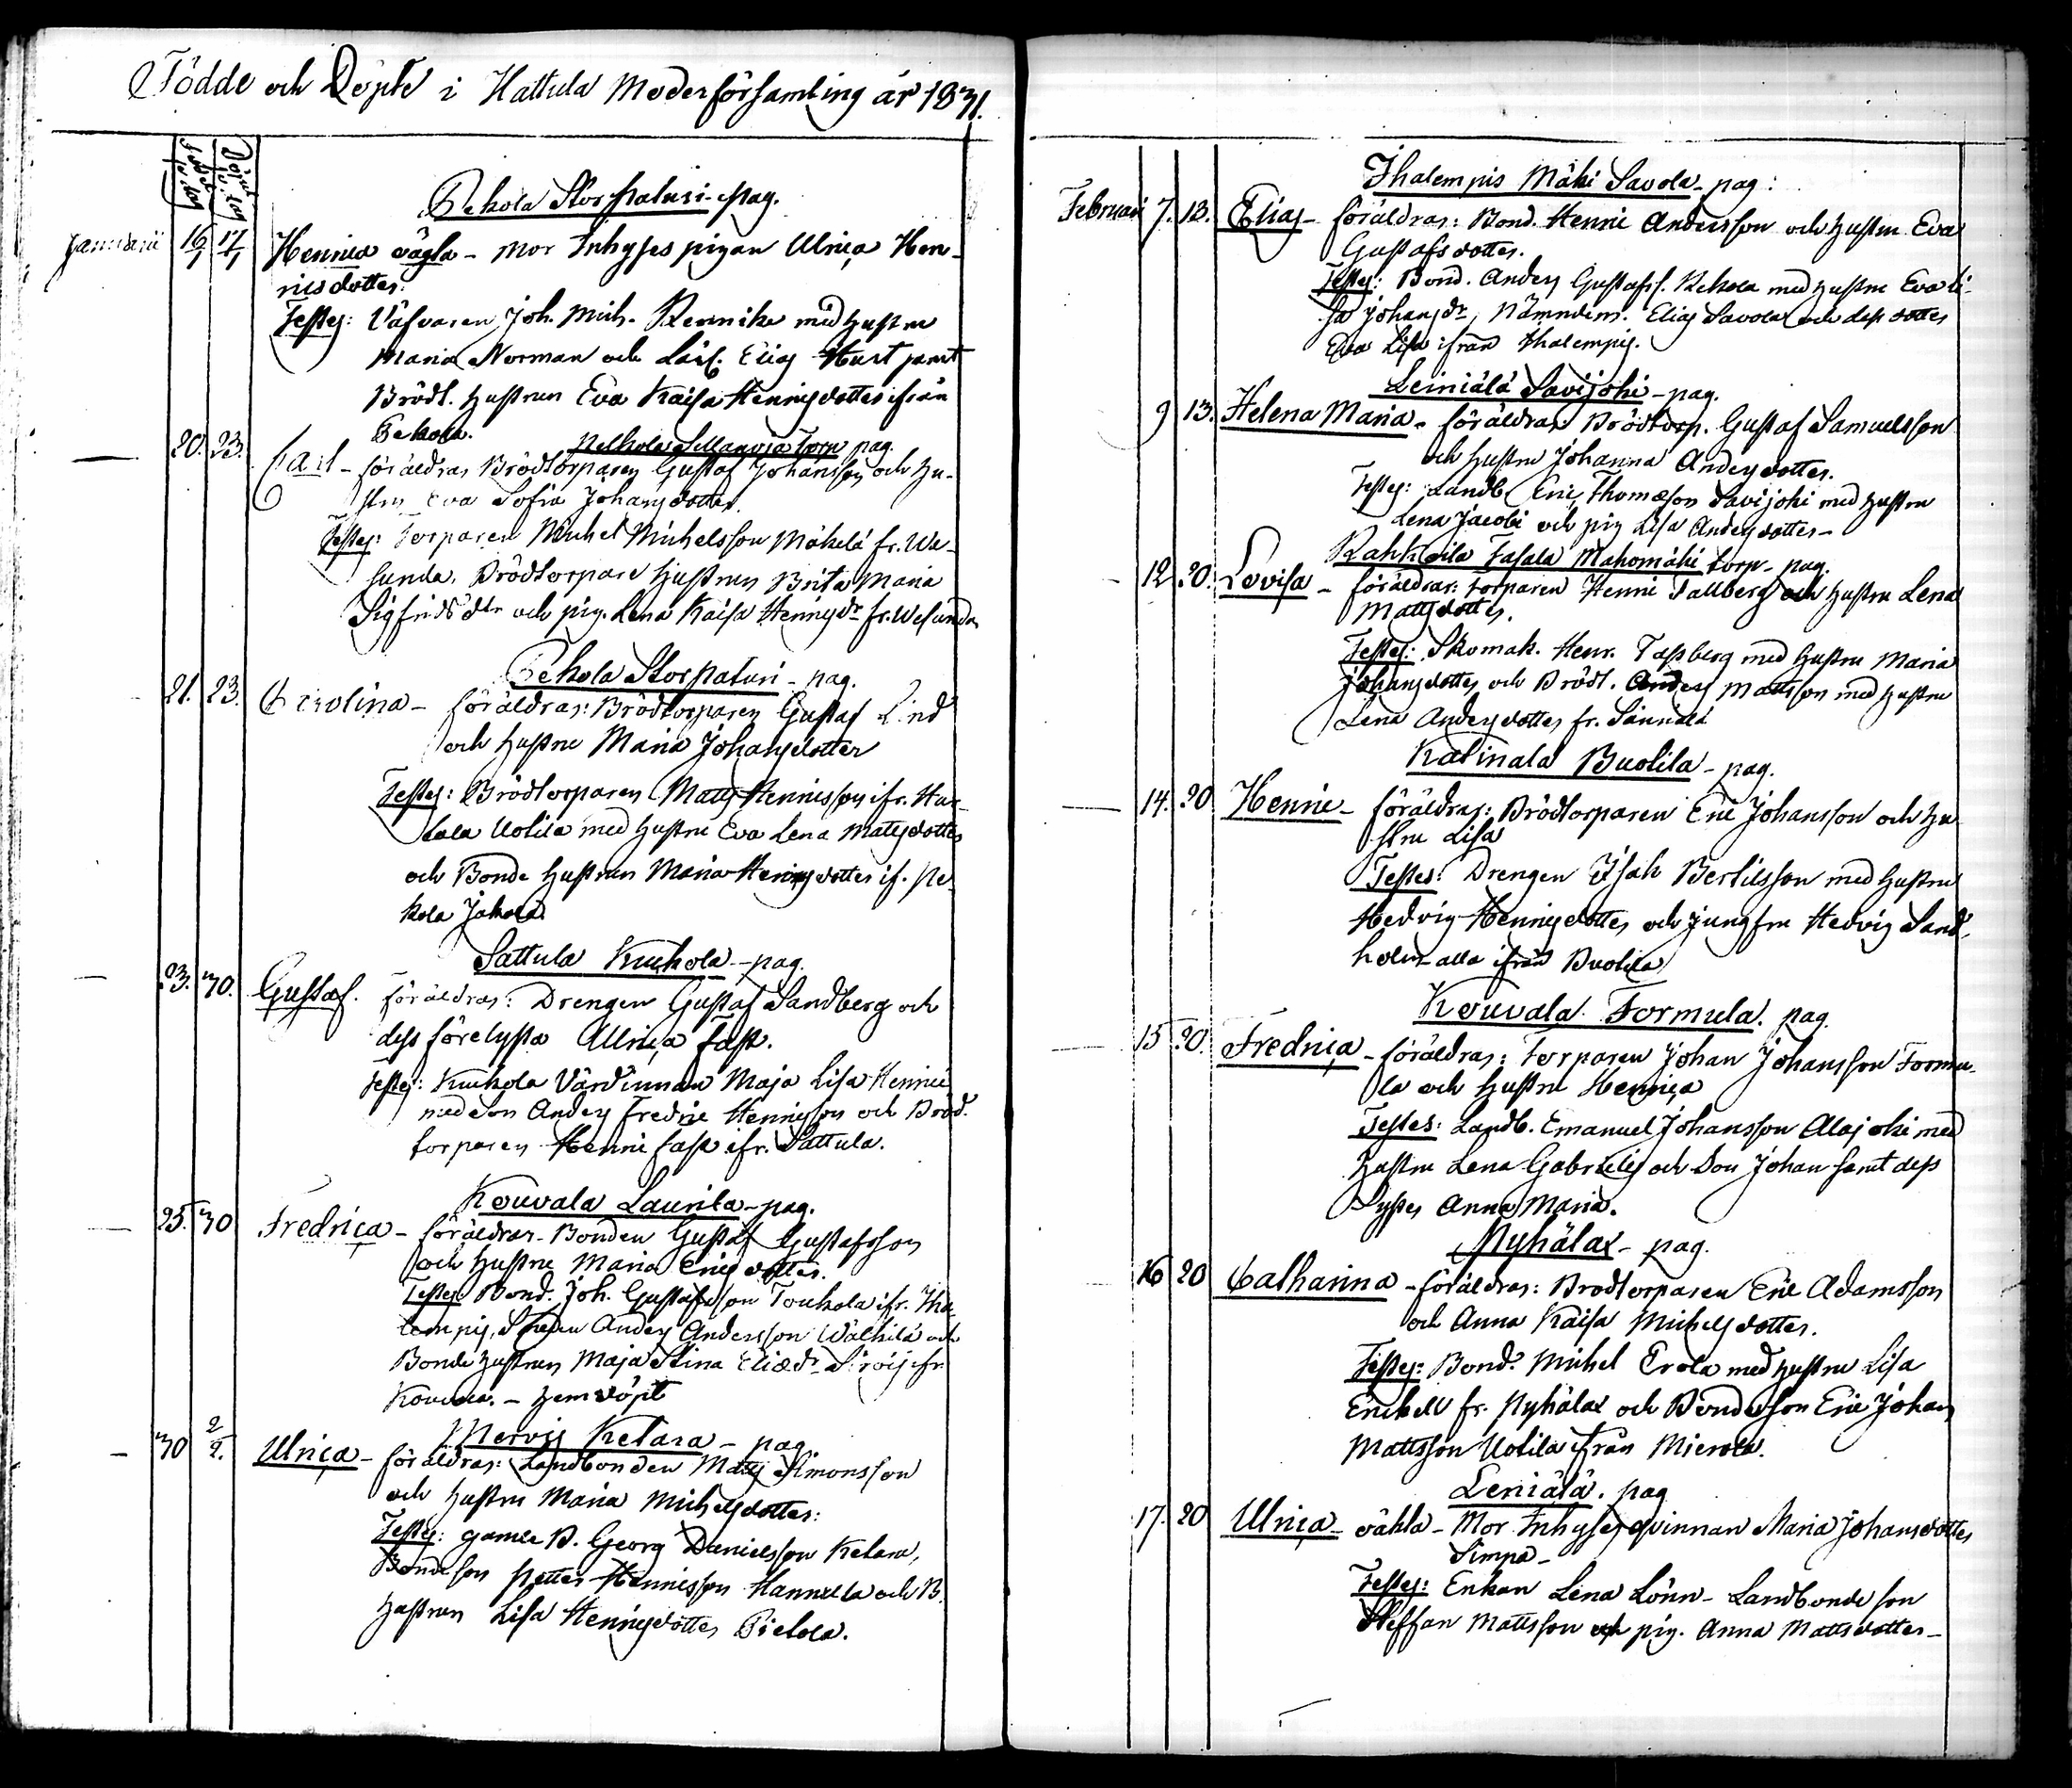 Födde och Döpte i Hattula Moderförsamling år 1831.
Född
Döpt
Pekola Storpaturi pag.
Januarii 16/1 17/1 Henrica oägta - Mor Inhyses pigan Ulrica Hen-
ricsdotter.
Testes: Väfvaren Joh. Mich. Rennike med hustru
Maria Norman och Elias Hurt samt
Brödt. hustrun Eva Kaisa Henricsdotter ifrån
Pekola.
Pelkola torp pag.
20. 23. Carl - föräldrar Brödtorparen Gustaf Johansson och hu-
stru Eva Sofia Johansdotter.
Testes: Torparen Michel Michelsson Mäkelä fr. We-
sunda, Brödtorpare hustrun Brita Maria
Sigfrids dtr och pig. Lena Kaisa Henricsdr fr. Wesunda
Pekola Storpaturi - pag.
21. 23. Carolina - föräldrar: Brödtorparen Gustaf Lind
och hustru Maria Johansdotter
Testes: Brödtorparen Matts Henricsson ifr. Hur-
tala Uotila med hustru Eva Lena Mattsdotter
och Bonde hustrun Maria Henricsdotter if. Pe-
kola Jakola
Sattula Kuckola - pag.
23. 30. Gustaf. föräldrar: Drengen Gustaf Sandberg och
dess förelysta Ullrica Fast.
Testes: Kuckola Värdinnan Maja Lisa Henrics
med son Anders Fredric Henricsson och Bröd-
torparen Henric Fast ifr. Sattula.
Kouvala Laurila - pag.
25. 30 Fredrica - föräldrar - Bonden Gustaf Gustafsson
och hustru Maria Ericsdotter.
Testes Bond. Joh. Gustafsson Toukola ifr. Iha-
lempis, Anders Andersson Wälkilä och
Bonde hustrun Maja Stina Eliædr ifr
Kouvala. - hemdöpt
Mervis Ketara - pag.
30 2/2. Ulrica - föräldrar: Landbonden Matts Simonsson
och hustru Maria Michelsdotter:
Testes: gamle B. Georg Danielsson Ketara,
Bondeson Petter Henricsson Hannula och B.
hustrun Lisa Henricsdotter Pielola.
Ihalempis Mäki Savola - pag:
Februari 7. 13. Elias - föräldrar: Bond. Henric Andersson och hustru Eva
Gustafsdotter.
Testes: Bond. Anders Gustafss. Rekola med hustru Eva Li-
sa Johansdr, Nämndem. Elias Savola och dess dotter
Eva Lisa ifrån Ihalempis.
Leiniälä Savijoki - pag.
9 13. Helena Maria - föräldrar Brödtorp. Gustaf Samuelsson
och hustru Johanna Andersdotter.
Testes: Landb. Eric Thomæson Savijoki med hustru
Lena Jacobi och pig Lisa Andersdotter -
Rahkoila Fasala Mahomäki torp - pag.
12 20. Lovisa - föräldrar: torparen Henric Tallberg och hustru Lena
Mattsdotter.
Testes: Skomak. Henr. Tassberg med hustru Maria
Johansdotter och Brödt. Anders Mattsson med hustru
Lena Andersdotter fr. Sännälä
Katinala Buolila - pag.
14. 20 Henric - föräldrar: Brödtorparen Eric Johansson och hu
stru Lisa
Testes: Drengen Isak Bertilsson med hustru
Hedvig Henricsdotter och Jungfru Hedvig Sand-
holm alla ifrån Buolila
Kouvala Formula. pag.
15 20. Fredrica - föräldrar: torparen Johan Johansson Formu-
la och hustru Henrica
Testes: Landb. Emanuel Johansson Alajoki med
hustru Lena Gabrielis och Son Johan samt dess
Syster Anna Maria.
Nyhälax - pag.
16 20 Catharina - föräldrar: Brödtorparen Eric Adamsson
och Anna Kaisa Michelsdotter.
Testes: Bond. Michel Erola med hustru Lisa
Enckell fr. Nyhälax och Bondeson Eric Johan
Mattsson Uotila ifrån Mierola.
Leniälä. pag
17. 20 Ulrica - oäkta - Mor Inhyses qvinnan Maria Johansdotter
Simpa -
Testes: Enkan Lena Lönn - Landbonde son
Steffan Mattsson och pig. Anna Mattsdotter -